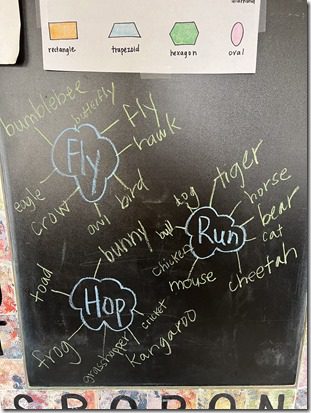 rectangle
trapezoid
hexagon
oval
bumblebee
butterfly
fly
hawk
Fly
eagle
crow
owl
bird
dog
tiger
horse
bull
bear
Run
cat
chicken
mouse
cheetah
bunny
toad
Hop
cricket
frog
grasshopper
Kangaroo